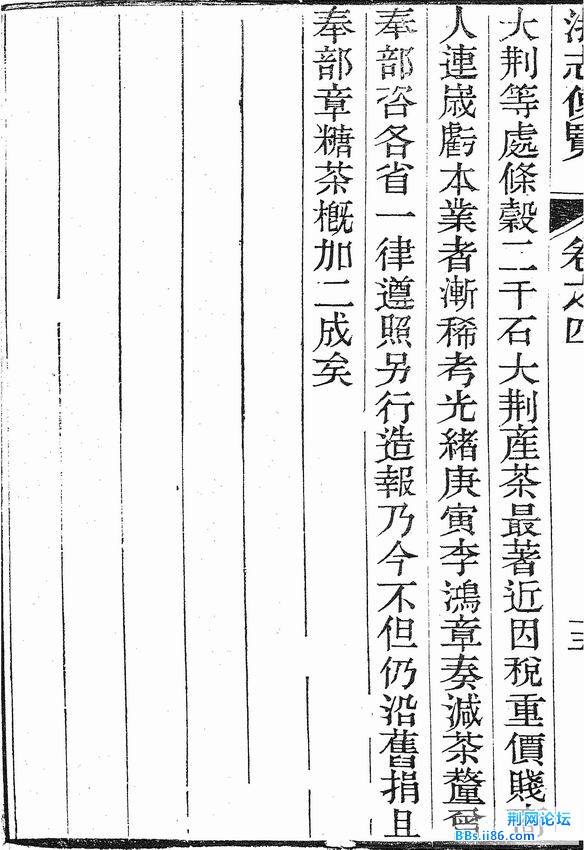 浙志便覽 卷之四 三
大荆等處條穀二千石大荆産茶最著近因稅重價賤商
人連歲虧本業者漸稀考光緒庚寅李鴻章奏減茶釐曾
奉部咨各省一律遵照另行造報乃今不但仍沿舊捐且
奉部章糖茶概加二成矣
荆网论坛
BBs.ii86.com